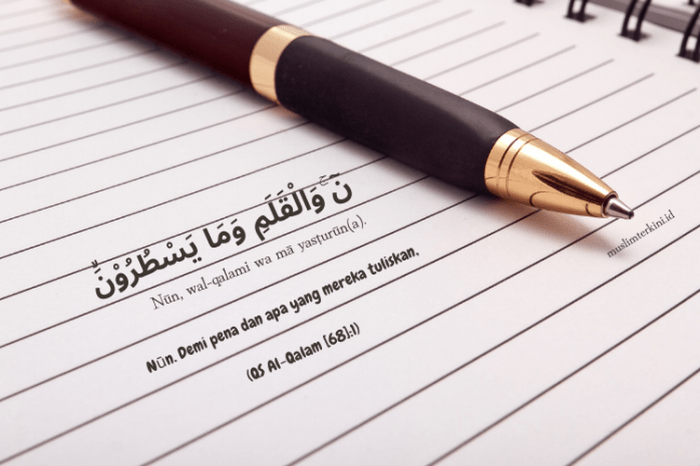 نۤ ۚوَالْقَلَمِ وَمَا يَسْطُرُوْنَۙ
Nūn, wal-qalami wa mā yasṭurūn(a).
Nūn. Demi pena dan apa yang mereka tuliskan,
(QS Al-Qalam [68]:1)
muslimterkini.id